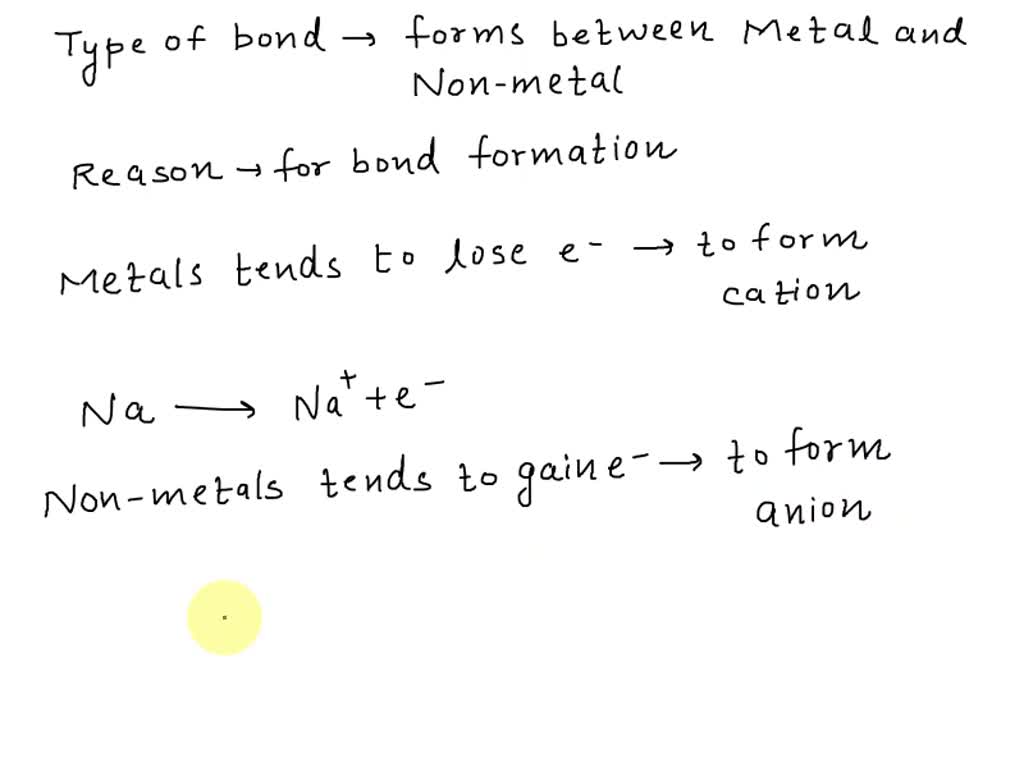 Type of bond → forms between Metal and
Non-metal
Reason → for bond formation
Metals tends to lose e⁻ → to form
cation
Na → Na⁺ + e⁻
Non-metals tends to gain e⁻ → to form
anion